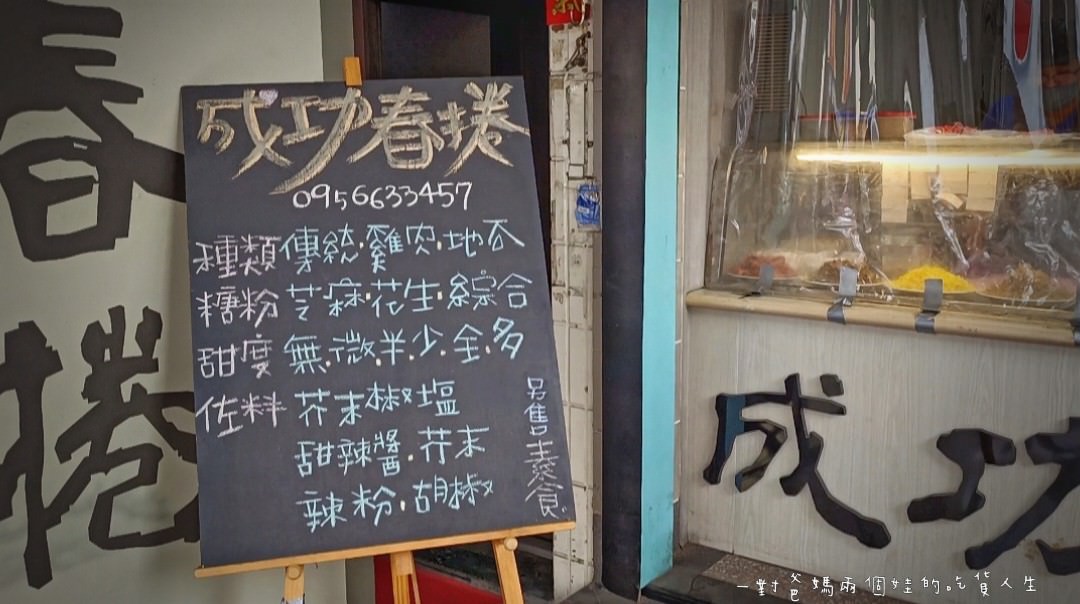 春捲
成功春捲
0956633457
種類 傳統·雞肉·地瓜
糖粉 芝麻·花生·綜合
甜度 無·微·半·少·全·多
佐料 芥末椒塩
甜辣醬·芥末
辣粉·胡椒
另售素食
成功
一對爸媽兩個娃的吃貨人生